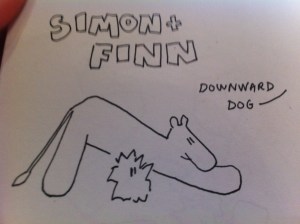 SIMON +
FINN
DOWNWARD
DOG